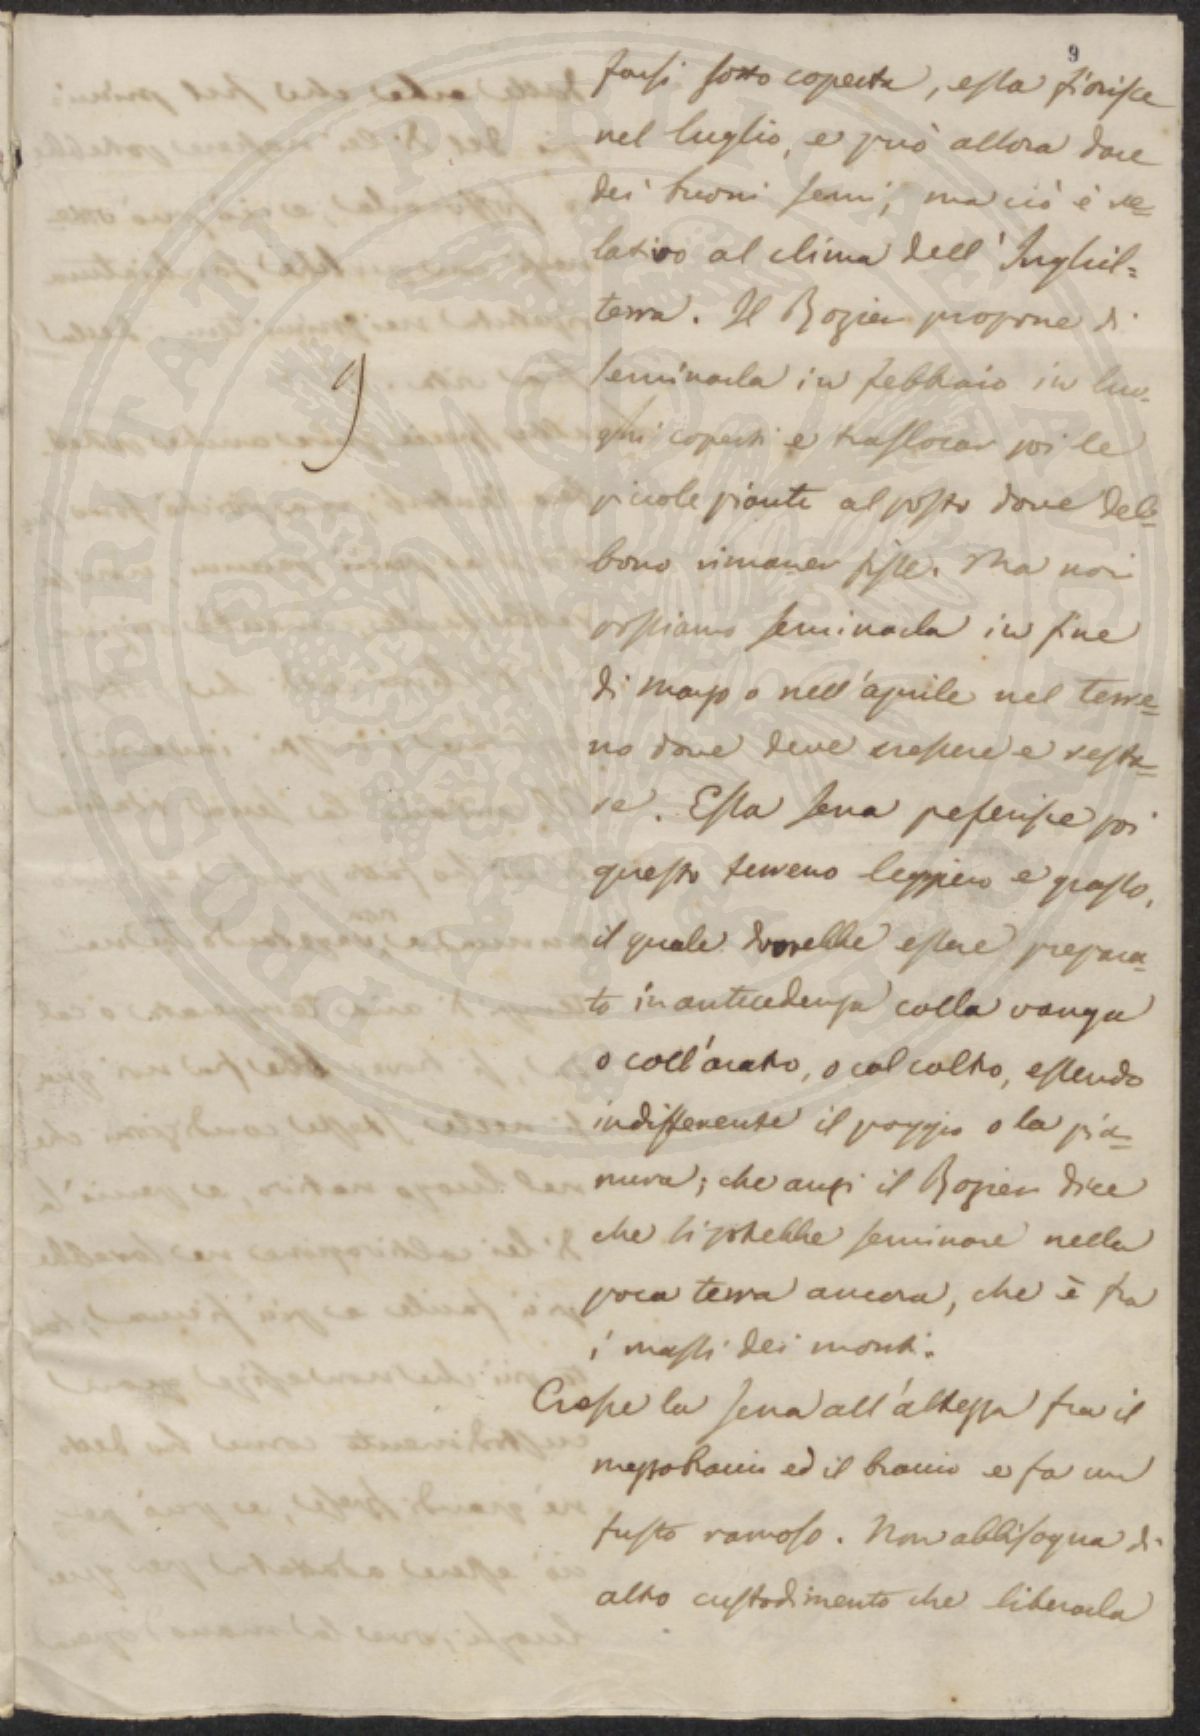 9
farsi sotto coperta, essa fiorisce
nel luglio, e può allora dare
dei buoni semi; ma ciò è re=
lativo al clima dell'Inghil=
terra. Il Rozier propone di
seminarla in febbraio in luo-
ghi coperti e traslocar poi le
piccole piante al posto dove deb=
bono rimaner fisse. Ma noi
possiamo seminarla in fine
di marzo o nell'aprile nel terre=
no dove deve crescere e resta=
re. Essa sena preferisce poi
questo terreno leggiero e grasso,
il quale dovrebbe essere prepara=
to in antecedenza colla vanga
o coll'aratro, o col coltro, essendo
indifferente il poggio o la pia=
nura; che anzi il Rozier dice
che si potrebbe seminare nella
poca terra ancora, che è tra
i massi dei monti.
Cresce la sena all'altezza fra il
mezzobraccio ed il braccio e fa un
fusto ramoso. Non abbisogna di
altro custodimento che liberarla
9
PROSPERITATI PVBLICAE